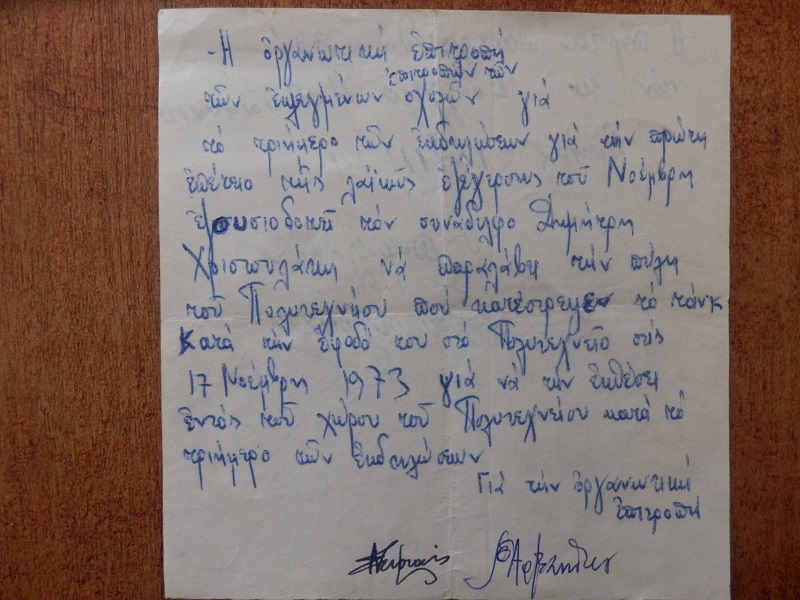 - Η ὀργανωτική ἐπιτροπή
ἐπιτροπῶν τῶν
τῶν ἐκλεγμένων σχολῶν γιά
τό τριήμερο τῶν ἐκδηλώσεων γιά τήν πρώτη
ἐπέτειο τῆς λαϊκῆς ἐξέγερσης τοῦ Νοέμβρη
ἐξουσιοδοτεῖ τόν συνάδελφο Δημήτρη
Χριστουλάκη νά παραλάβει τήν πύλη
τοῦ Πολυτεχνείου πού κατέστρεψεν τό τάνκ
Κατά τήν ἔφοδό του στό Πολυτεχνεῖο στίς
17 Νοέμβρη 1973 γιά νά τήν ἐκθέσει
ἐντός τοῦ χώρου τοῦ Πολυτεχνείου κατά τό
τριήμερο τῶν ἐκδηλώσεων
Γιά τήν ὀργανωτική
ἐπιτροπή